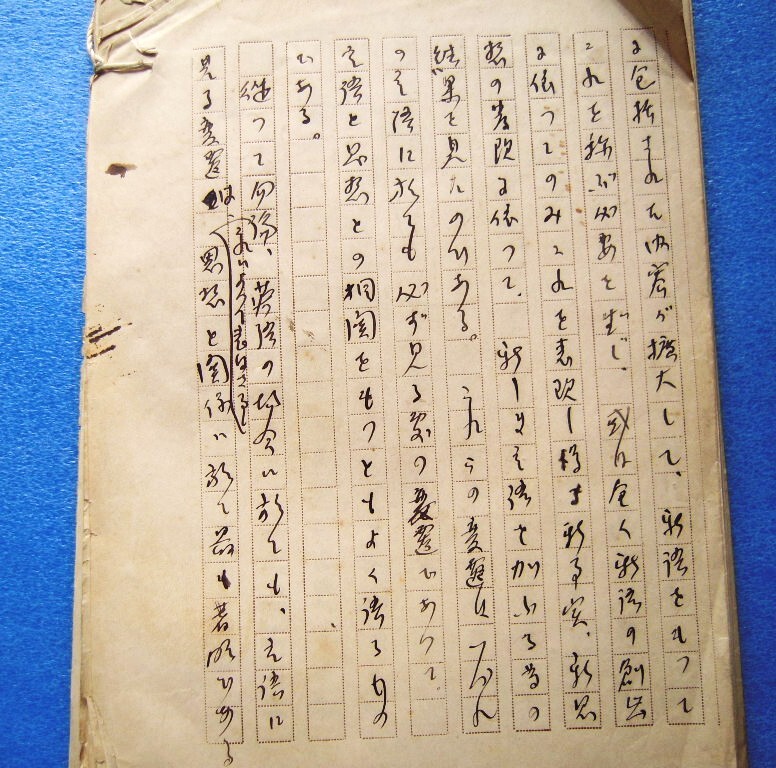 に包括された内容が拡大して、新語をもつて
これを称ぶ必要を生じ、或は全く新語の創出
に依つてのみこれを表現し得よう事実、新思
想の発現に依つて、新しき言語を加ふる等の
結果を見たのである。これらの変遷は
の言語に於ても必ず見る処の変遷であつて、
言語と思想との相関をもつともよく語るもの
である。
従つて勿論、の場合に於ても、言語に
見る変遷は、思想と関係に於て最も著明である